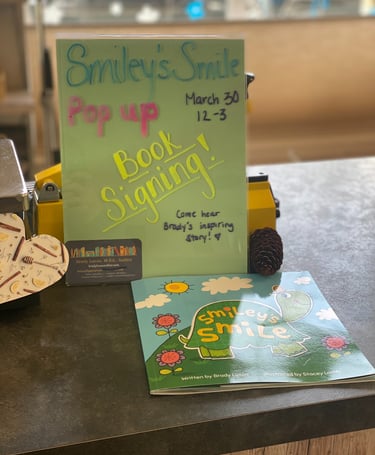 Smiley's Smile
Pop up
March 30
12-3
Book
Signing!
Come hear
Brody's inspiring
Story!
SMiLEY'S
SMiLE
Written by Brody
Illustrated by Stacey